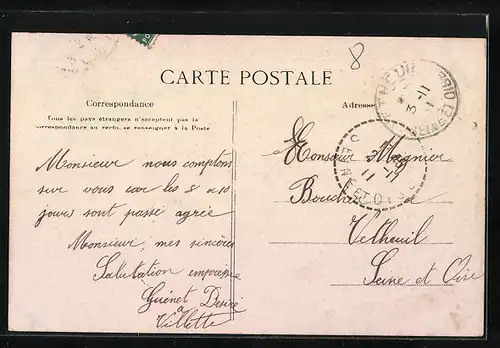 8
CARTE POSTALE
Correspondance
Tous les pays étrangers n'acceptent pas la
correspondance au recto, se renseigner à la Poste
Monsieur nous comptons
sur vous car les 8 a 10
jours sont passé agrée
Monsieur mes sincères
Salutation empressée
Guénet Desiré
a
Villette
Adresse
Monsieur Magnier
Boucher
Vetheuil
Seine et Oise
3-11
SEINE ET OISE
11